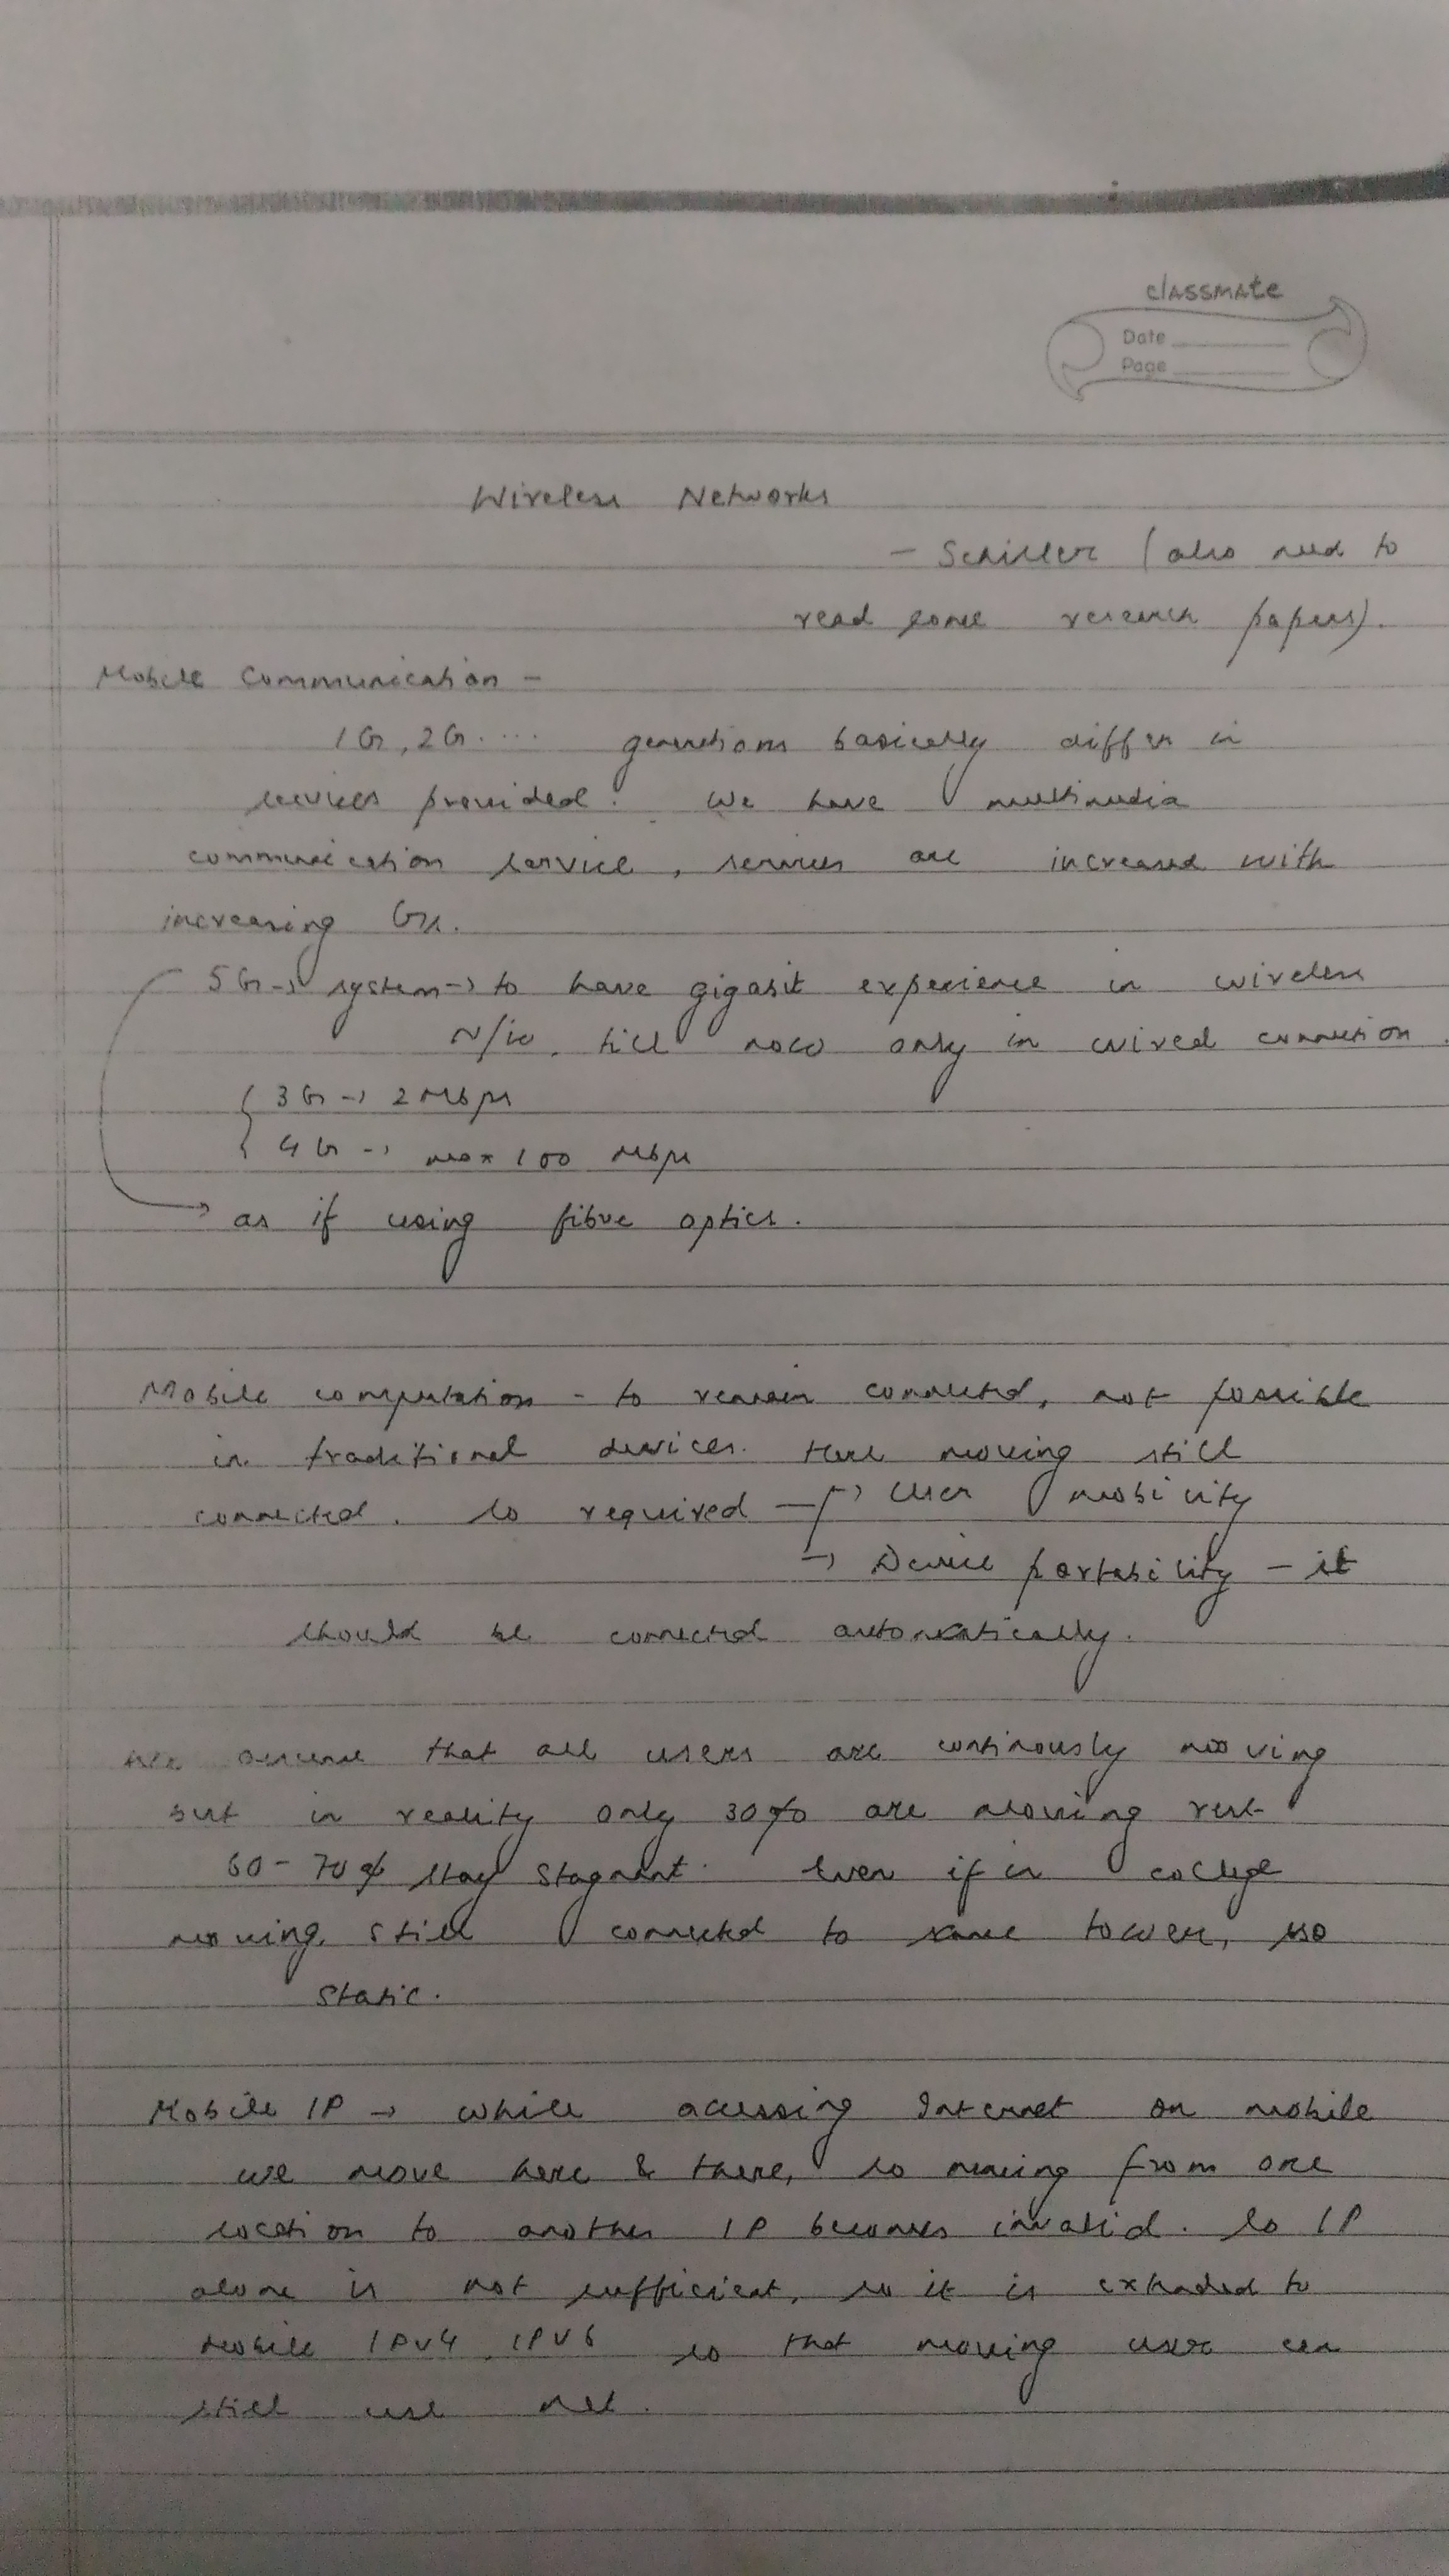 classmate
Date
Page
Wireless Networks
- Schiller (also need to
read some research papers).
Mobile Communication -
1G, 2G.... generations basically differ in
services provided. We have multimedia
communication service, services are increased with
increasing Gs.
5G → system → to have gigabit experience in wireless
N/w, till now only in wired connection.
3G → 2 Mbps
4G → max 100 Mbps
as if using fibre optics.
Mobile computation - to remain connected, not possible
in traditional devices. Here moving still
connected. So required → User mobility
→ Device portability - it
should be connected automatically.
We assume that all users are continously moving
but in reality only 30% are moving rest
60-70% stay stagnant. Even if in college
moving, still connected to same tower, so
static.
Mobile IP → while acessing Internet on mobile
we move here & there, so moving from one
location to another IP becomes invalid. So IP
alone is not sufficient, so it is extended to
Mobile IPv4, IPv6 so that moving user can
still use net.